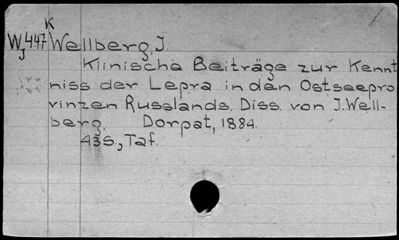 K
W 447 Wellberg, J.
J
Klinische Beiträge zur Kennt
niss der Lepra in den Ostseepro
vinzen Russlands. Diss. von J. Well-
berg. Dorpat, 1884.
43S., Taf.